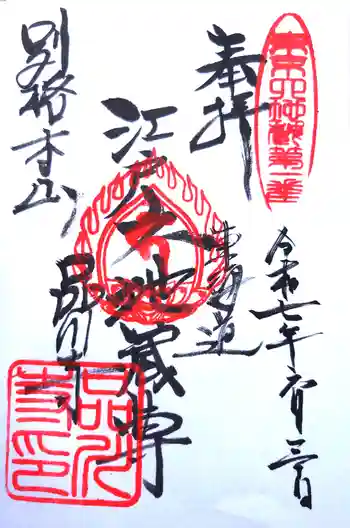 六地蔵第一番
奉拝
令和七年六月三日
東海道
江戸六地蔵尊
品川寺
別格本山
品川寺印